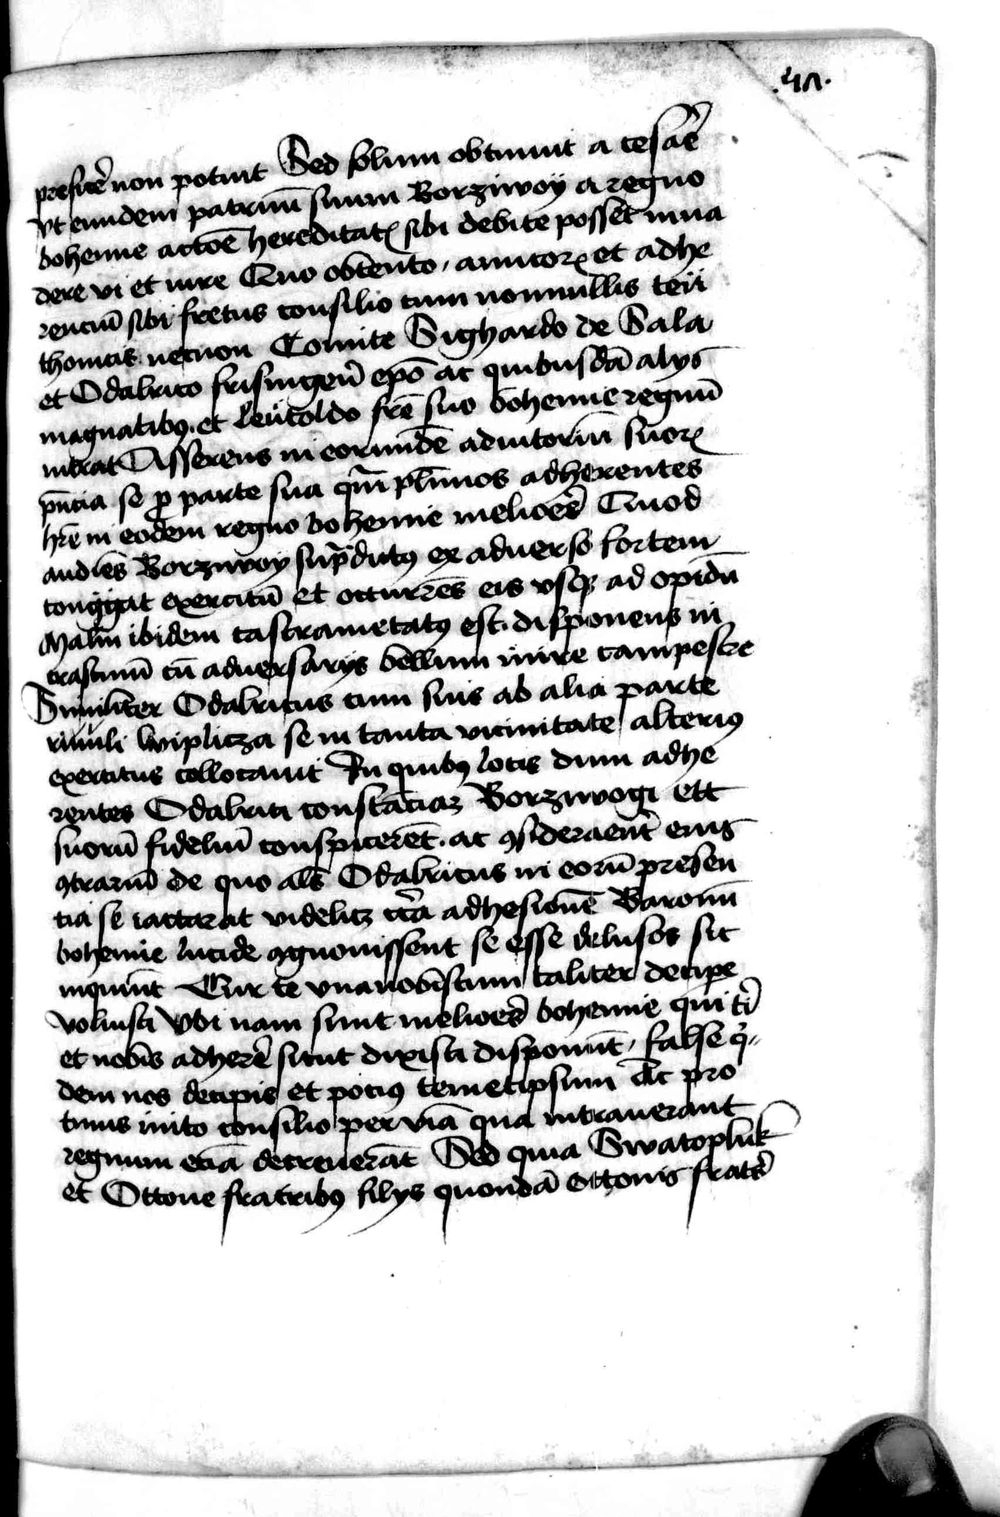 .47.
preficẽ non potuit Sed solum obtinuit a cesaẽ
vt eundem patruũ suum Borziwoy a regno
bohemie actoẽ hereditatꝭ sibi debite posset inua
dere vi et iure Quo obtento, amicorꝝ et adhe
renciũ sibi fretus consilio cum nonnullis teu
thonicis necnon Comite Sighardo de Sala
et Odalrico frisingeñ epõ ac quibusdã alys
magnatibꝰ. et Leutoldo frẽ suo bohemie regnũ
intrat Asserens in eorundẽ adiutoriũ suorꝝ
pñcia se ꝓ parte sua qm̃ pl̃imos adherentes
hr̃e in eodem regno bohemie melioẽs Quod
audiẽs Borziwoy sup̃dictꝰ ex aduerso fortem
congregat exercitũ et occurrẽs eis vsqꝫ ad opidũ
Malin ibidem castrametatꝰ est. disponens in
crastinũ cũ aduersarys bellum inire campestre
Similiter Odalricus cum suis ab alia parte
riuuli wiplicza se in tanta vicinitate alterius
exercitus collocauit In quibꝰ locis dum adhe
rentes Odalrici constãciaꝫ Borziwogi ett
suorũ fideliũ conspicerẽt. ac ꝯsideraent̃ eius
ꝯtrariũ de quo als̃ Odalricus in eorũ presen
cia se iactarat videlicꝫ cc̃a adhesionẽ Baronũ
bohemie lucide ꝯgnouissent se esse delusos sic
inquiũt Cur te vna nobiscum taliter decipe
voluisti Vbi nam sunt melioẽs bohemie qui tĩ
et nobis adherẽ sicut dixisti disponũt, false q̃
dem nos decipis et pociꝰ temetipsum Ac pro
tinus inito consilio per viã qua intrauerant
regnum eciã decreuerãt Sed quia Swatopluk
et Ottone fratribꝰ filys quondã Ottonis fratẽ